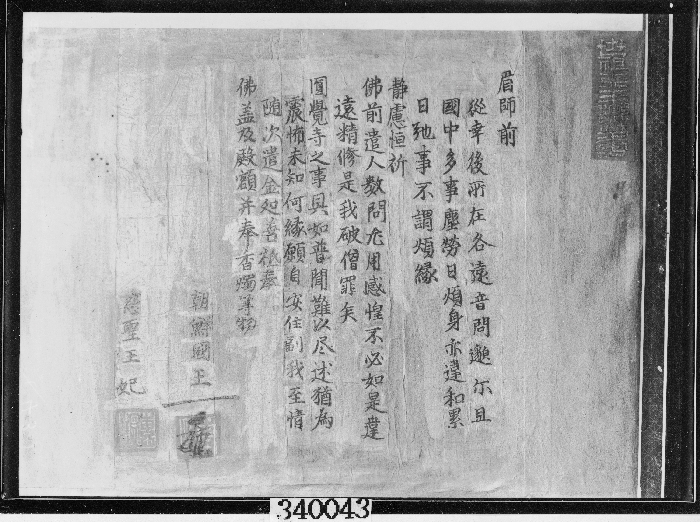 眉師前
從幸後所在各遠音問邈尓且
國中多事塵勞日煩身亦違和累
日馳事不謂煩緣
靜慮恒祈
佛前遣人數問尤用感惶不必如是違
遠精修是我破僧罪矣
圓覺寺之事具如普聞難以尽述猶為
震怖未知何緣願自安住副我至情
随次遣金処善祗奉
佛盖及殿額并奉香燭等物
朝鮮國王
慈聖王妃
340043